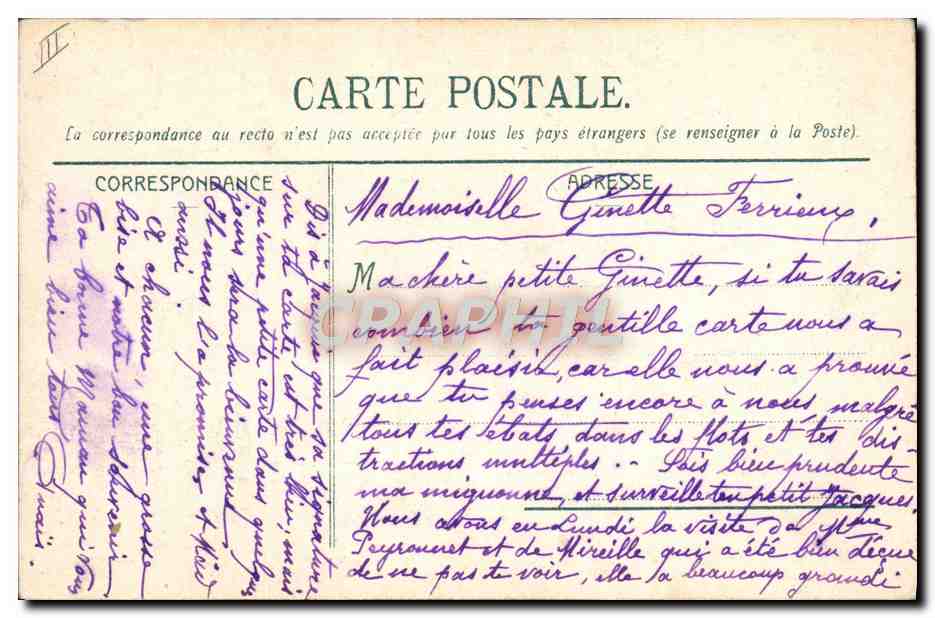 III
CARTE POSTALE.
La correspondance au recto n'est pas acceptée par tous les pays étrangers (se renseigner à la Poste).
CORRESPONDANCE
ADRESSE
Mademoiselle Ginette Ferrieux,
Ma chère petite Ginette, si tu savais
combien ta gentille carte nous a
fait plaisir, car elle nous a prouvé
que tu penses encore à nous, malgré
tous tes ébats dans les flots et tes dis
tractions multiples.. Sois bien prudente
ma mignonne, et surveille ton petit Jacques.
Nous avons eu Lundi la visite de Mme
Peyronnet et de Mireille qui a été bien déçue
de ne pas te voir, elle a beaucoup grandi
Dis à que sa signature
sur ta carte est très bien, mais
qu'une petite carte dans quelques
jours sera la bienvenue
Il nous l'a promise, et
aussi.
A chacun, une grosse
bise et notre bon souvenir
Ta bonne Maman qui vous
aime bien tous
CRAPHIL